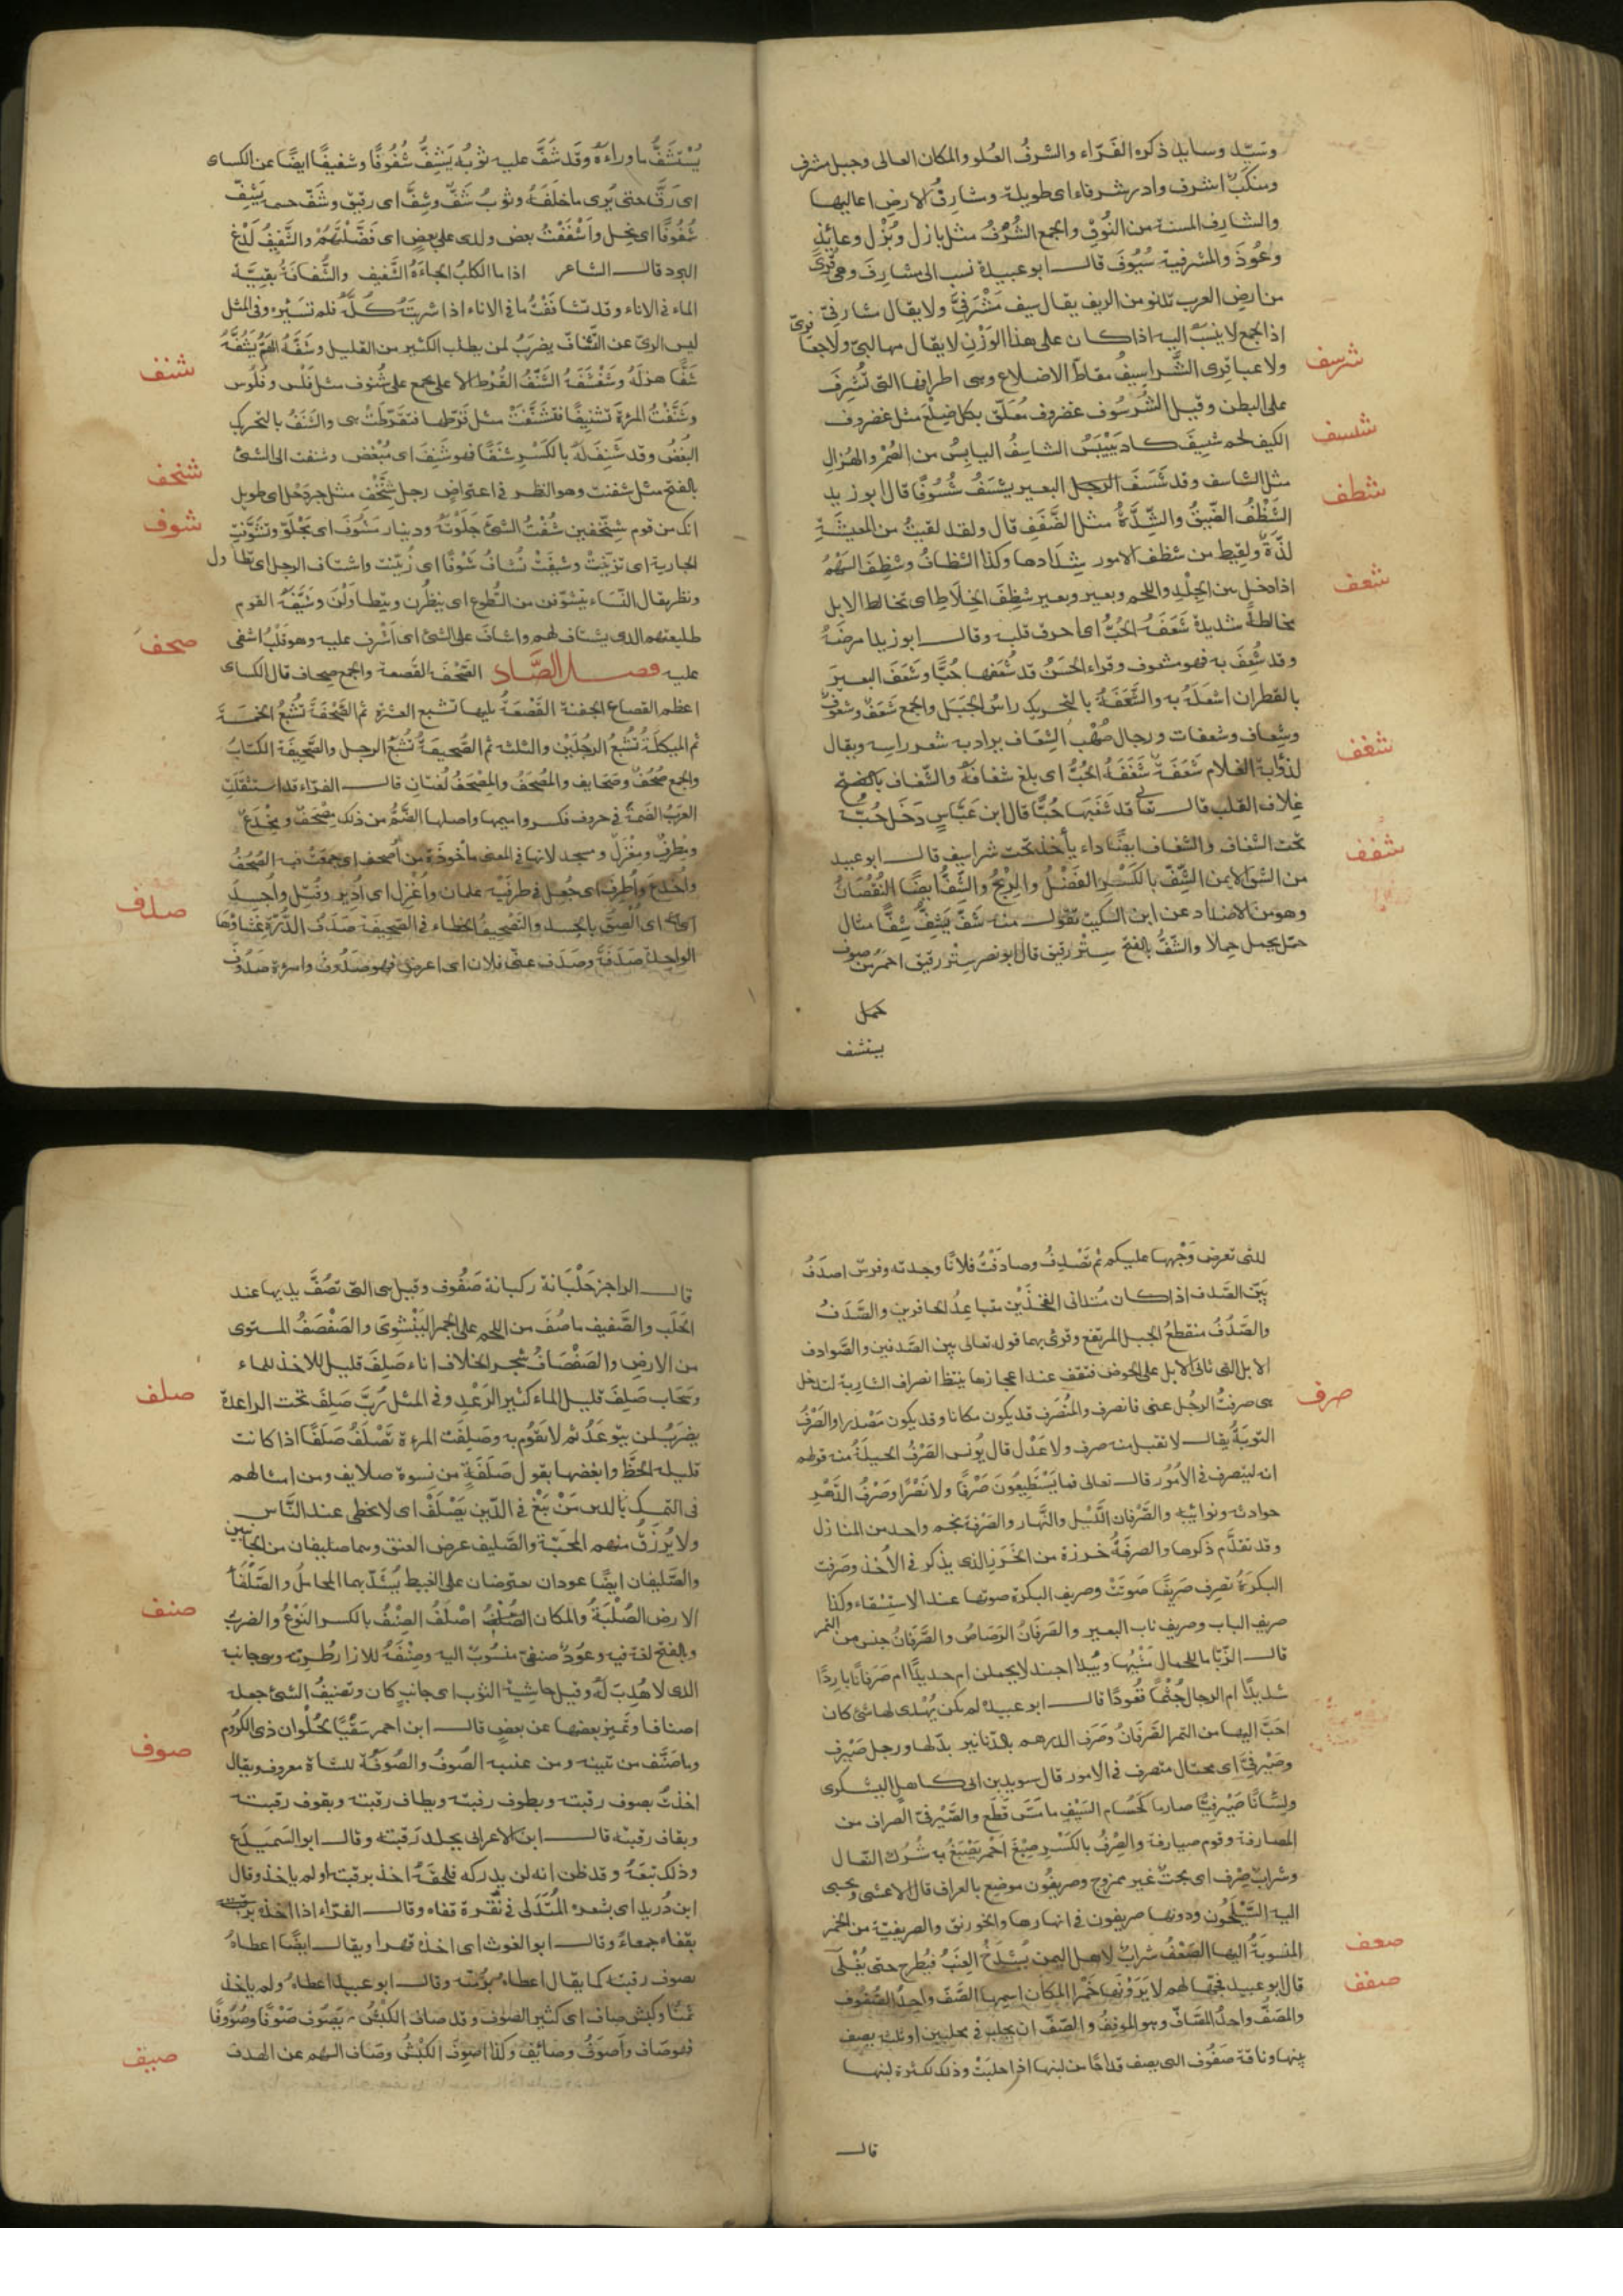 وسيّد وسايد ذكره الفَرّاء والشرفُ العُلو والمكان العالى وجبل مشرف
ومنكبٌ اشرف واذن شرفاء اى طويلة وشارفُ الارض اعاليها
والشارف المسنة من النُوق والجمع الشُرْفُ مثل بازل وبُزْل وعايذ
وعُوذ والمشرفية سُيُوف قال ابو عبيدة نسب الى مشارف وهى قرى
من ارض العرب تدنو من الريف يقال سيف مَشْرَفىّ ولا يقال مشارفىّ
اذا لجمع لا ينسب اليه اذا كان على هذا الوَزْن لا يقال مهالبىّ ولا جعافرىّ
شرسف
ولا عباقرى الشَّراسيفُ مقاطّ الاضلاع وهى اطرافها التى تُشرِف
على البطن وقيل الشُرسُوف غضروف مُعلّق بكل ضِلْع مثل غضروف
شسف
الكتف لحم شسِيف كاد يَيْبَسُ الشاسِفُ اليابِسُ من الضُمْر والهُزال
شظف
مثل الشاسف وقد شَسَفَ البعير يشسَفُ شُسُوفًا قال ابو زيد
الشَظَفُ الضِيقُ والشِّدَّةُ مثل الضَّفَفِ قال ولقد لقيتُ من المعيشَةِ
لذّةً ولقيط من شظف الامور شِدَادها وكذا الشظافُ وشَظِفَ السَهْمُ
شعف
اذا دخل بين الجِلْدِ واللحم وبعير شظِفُ الخِلاط اى يخالط الابل
مخالطةً شديدة شَعَفَهُ الحُبُّ اى احرق قلبه وقال ابو زيد امرضَهُ
وقد شُعِفَ به فهو مشعوف وقراء الحَسَنُ قد شَعَفها حُبًّا وشَعَفَ البعيرَ
بالقطران اشعَلَهُ به والشَّعَفَةُ بالتحريك راسُ الجَبَل والجمع شَعَفٌ وشُعوفٌ
شغف
وشِعاف وشعفات ورجل صُهْب الشِعَاف يراد به شعر راسه ويقال
لذؤابة الغلام شَعَفَةٌ شَغَفَهُ الحُبُّ اى بلغ شغافَهُ والشّغاف بالفتح
غِلاف القلب قال تعالى قد شَغَفَهَا حُبًّا قال ابن عَبّاسٍ دَخَل حُبُّه
شفف
تحت الشغاف والشغاف ايضًا داء يأخذ تحت شراسيف قال ابو عبيد
من الشق الايمن الشِّفّ بالكَسْرِ الفَضْلُ والرِّبْحُ والشِّفُّ ايضًا النُقْصَانُ
وهو من الاضداد عن ابن السكيت تقول منه شَفَّ يَشِفُّ شِفًّا مثال
حمل يحمل حملا والشَّفُّ بالفتح سِتْر رَقيق قال ابو نصر سِتْر رقيق احمَرُ من صوف
يستشف
يُسْتَشَفُّ ما وراءَهُ وقد شَفَّ عليه ثوبُه يَشِفُّ شُفُوفًا وشفيفًا ايضًا عن الكساى
اى رَقَّ حتى يُرى ما خلفَهُ وثوبٌ شَفٌّ وشِفٌّ اى رقيق وشَفّ جسمه يَشِفّ
شُفُوفًا اى نحل واَشْفَفْتُ بعض ولدى على بعضٍ اى فَضَّلْتَهُمْ والشَّفِيفُ لَذْعُ
البرد قال الشاعر اذا ما الكلبُ الجاءَهُ الشَّفيف والشُّفافَةُ بقيّة
الماء فى الاناء وقد تشافَفْتُ ما فى الاناء اذا شربتَهُ كُلَّهُ فلم تسَيْرْه وفى المثل
ليس الرىّ عن التّشافّ يضرَبُ لمن يطلب الكثير من القليل وشفَّهُ الهَمُّ يَشُفُّهُ
شنف
شَفًّا هزلَهُ وشَفْشَفَهُ الشَّنْفُ القُرْط الاعلى يجمع على شُنوف مثل فَلْس وفُلُوس
وشَنَّفْتُ المرءةَ تشنيفًا فتَشَنَّفَتْ مثل قرّطتها فتَقَرّطَتْ هى والشَنَفُ بالتحريك
البُغضُ وقد شَنِفَ لَهُ بالكَسْرِ شنَفًا فهو شَنِفَ اى مُبْغض وشنفت الى الشئ
شنخف
بالفتح مثل شفنت وهو النظر فى اعتراض رجل شِنَّخْف مثل جردحل اى طويل
شوف
انك من قوم شِنَّخْفين شُفْتُ الشئَ جَلَوْتُهُ ودينار مَشُوف اى مجْلَوّ وتَشوَّفتِ
الجارية اى تزَيّنَتْ وشيفَتْ تُشافُ شَوْفًا اى زُيّنت واشتاف الرجل اى تطاول
ونظر يقال النّساء يتشوّفن من السُّطوح اى ينظُرن ويتطاولْنَ وشَيَّفَةُ القوم
صحف
طليعتهم الذى يشتاف لهم واشافَ على الشئ اى اشْرف عليه وهو قلْبُ اشفى
عليه فصل الصَّاد الصَّحْفَة القَصعة والجمع صحاف قال الكساى
اعظم القصاع الجفنة القَصْعَةُ يليها تشبع العشرة ثم الصَّحْفَةُ تُشبِعُ الخمسَةَ
ثم الميكلَةُ تُشْبعُ الرجُلَيْن والثلثة ثم الصُّحيفَةُ تُشْبعُ الرجل والصَّحِيفَة الكتَابُ
والجمع صُحُفٌ وصَحَايف والمُصحَفُ والمِصْحَفُ لُغتانِ قال الفرّاء قد استثقلَتِ
العرَبُ الضَمّةَ فى حروف فكسروا ميمها واصلها الضَّمُّ من ذلك مِصْحَفٌ ومِخْدَعٌ
ومِطرَفٌ ومِغْزَلٌ ومِجسد لانها فى المعنى مأخوذة من اُصحِف اى جمعَتْ فيه الصُحُفُ
صدف
واُطرِفَ اى جُعِل فى طرفَيْه علمان واُغْزِل اى اُديرَ وفُتِل واُجسِد
اى اُلْصِقَ بالجسد والتَصْحيفُ الخطاء فى الصَّحِيفَة صَدَفُ الدُّرّة غِشاؤها
الواحدة صَدَفَةٌ وصَدَف عنّى فلان اى اعرض فهو صَدُوفٌ وامرءة صَدُوف
للتى تعرض وَجْهها عليكم ثم تَصْدِفُ وصادَفْتُ فلانًا وجدته وفرس اصدَفُ
بيّن الصَّدف اذا كان مُتدانى الفَخذَيْن متباعِدُ الحافرين والصَّدَفُ
والصُّدُفُ منقطعُ الجبل المرتفع وقرئ بهما قوله تعالى بين الصَّدفين والصَّوادف
الابل التى تاتى الابل على الحوض فتقف عند اعجازها ينتظر انصراف الشاربة لتدخل
صرف
هى صرفتُ الرجُل عنى فانصرف والمُنْصَرَف قد يكون مكانا وقد يكون مَصْدرا والصَّرْفُ
التوبةُ يقال لا تقبل منه صرف ولا عَدْل قال يُونس الصَّرْفُ الحيلَةُ منه قولهم
انه ليتصرف فى الاُمُور قال تعالى فما يَسْتَطيعُونَ صَرْفًا ولا نَصْرًا وصَرْفُ الدَّهْرِ
حوادثه ونوائِبُه والصَّرْفان اللَّيْل والنَّهار والصَرْفة نجم واحد من المنازل
وقد تقدَّم ذكرها والصرفَةُ خرزة من الخَرَزِ الذى يذكر فى الاُخَذ وصَرفت
البكرةُ تصرِف صَرِيفًا صَوتَتْ وصريف البكرة صوتها عند الاستِقاء وكذا
صريف الباب وصريف ناب البعير والصَرَفانُ الرَصَاصُ والصَّرَفانُ جنس من التمر
قال الزبّا ما للجِمال مَشْيُها وَئِيدا اجندلا يحملن ام حديدًا ام صَرَفانًا بارِدًا
شديدًا ام الرجال جُثّمًا قُعودًا قال ابو عبيدة لم يكن يُهْدى لها شئ كان
احَبَّ اليها من التمر الصَّرَفانُ وصَرَف الدرهم بالدّنانير بدّلها ورجل صَيْرف
وصَيْرَفىّ اى محتال متصرف فى الامور قال سويد بن ابى كاهل اليشكرى
ولِسَانًا صَيْرَفِيًّا صارما كَحُسَام السَيْفِ ما مَسَّ قَطَع والصَّيْرفىّ الصّراف من
المصارفة وقوم صيارفة والصِرفُ بالكَسْرِ صِبْغٌ اَحْمَر يُصْبَغُ به شُرُك النّعال
وشرابٌ صِرْف اى بحتٌ غير ممزوج وصريفُون موضع بالعراق قال الاعشى وتجبى
اليه السَّيْلَحُون ودونها صريفون فى انهارها والخورنق والصريفيّة من الخمر
صعف
المنسوبَةُ اليها الصَّعْفُ شرابٌ لاهل اليمن يُشدَخُ العِنَبُ فيُطرح حتى يُغْلَى
صفف
قال ابو عبيد فجهّالهم لا يَرَوْنَها خَمْرًا لمكان اسمها الصَّفّ واحِدُ الصُّفُوف
والمَصَفُّ واحِدُ المَصَافّ وهو الموقِفُ والصّفّ ان يحلب فى محلبين او ثلثة يصف
بينها وناقة صَفُوف التى يصف قداحًا من لبنها اذا حلبَتْ وذلك لكثرة لبنها
قال
قال الراجز حَلْبَانَة ركبانة صَفُوف وقيل هى التى تصُفُّ يديها عند
الحَلَب والصَّفيف ما صُفَّ من اللحم على الجمر لينْشوِىَ والصَفْصَفُ المستوى
من الارض والصَفْصَافُ شجر الخلاف اناء صَلِفَ قليل للاخذ للماء
صلف
وسَحَاب صَلِفٌ قليل الماء كثير الرَعْد وفى المثل رُبَّ صَلِفٍ تحت الراعدة
يضرَبُ لمن يتوعَدُ ثم لا يَقُوم به وصَلِفَت المرءة تَصْلَفُ صَلَفًا اذا كانت
قليلة الحَظّ وابغضها يقول صَلَفَة من نسوة صلايف ومن امثالهم
فى التمسك بالدين مَنْ يَبْغ فى الدّينِ يَصْلَفْ اى لا يحظى عند النَّاس
ولا يُرْزَقُ منهم المحَبّة والصَّليف عرض العنق وهما صليفان من الجانبين
والصَّليفان ايضًا عودان يعترضان على الغبيط يُشَدّ بهما المحامِلُ والصَّلْفَاُ
صنف
الارضُ الصُلْبَةُ والمكان الصُّلْبُ اصْلَفُ الصِنْفُ بالكسر النَوْعُ والضربُ
وبالفتح لغة فيه وعُودٌ صنفىّ منسُوبٌ اليه وصِنْفَةُ للازار طُرّته وهى جانبه
الذى لا هُدبَ لَهُ وقيل حاشية الثوب اى جانبٍ كان وتصنيفُ الشئ جعله
اصنافا وتَميز بعضها عن بعضٍ قال ابن احمر سَقْيًا بحُلْوان ذى الكُرُوم
صوف
وما صَنَّف من تينه ومن عنبه الصُوفُ والصُوفَةُ للشاة معروف ويقال
اخذتُ بصوف رقبته وبطوف رقبته وبطاف رقبته وبقوف رقبته
وبقاف رقبته قال ابن الاعرابى بجلد رَقبته وقال ابو السَمَيدَع
وذلك تبعَهُ وقد ظن انه لن يدركه فلحقَهُ اخذ برقبته او لم ياخذ وقال
ابن دُريد اى بشعره المُتَدلى فى نُقْرة قفاه وقال الفرّاء اذا اخذه
بقفاه جمعاءً وقال ابو الغوث اى اخذه قهرا ويقال ايضًا اعطاهُ
بصوف رقبته كما يقال اعطاه برُمّته وقال ابو عبيد اعطاهُ ولم ياخذ
ثمنًا وكبش صاف اى كثير الصوف وقد صاف الكَبْشُ يَصُوف صَوْفًا وصُوُوفًا
صيف
فهو صاف واَصوَفُ وصائِف وكذا صَوِفَ الكَبْشُ وصَاف السهم عن الهدف